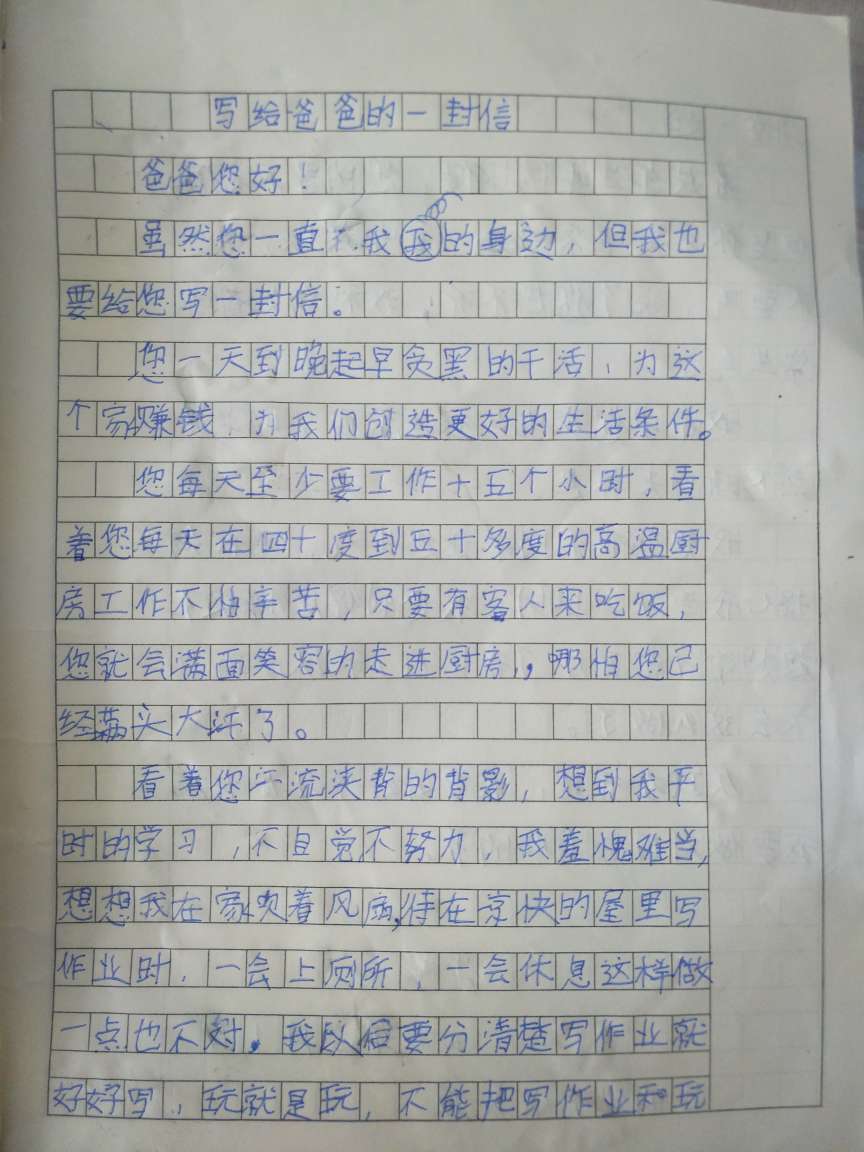 写给爸爸的一封信
爸爸您好！
虽然您一直在我我的身边，但我也
要给您写一封信。
您一天到晚起早贪黑的干活，为这
个家赚钱，为我们创造更好的生活条件。
您每天至少要工作十五个小时，看
着您每天在四十度到五十多度的高温厨
房工作不怕辛苦，只要有客人来吃饭，
您就会满面笑容的走进厨房，哪怕您已
经满头大汗了。
看着您汗流浃背的背影，想到我平
时的学习，不自觉不努力，我羞愧难当，
想想我在家吹着风扇，待在凉快的屋里写
作业时，一会上厕所，一会休息这样做
一点也不对。我以后要分清楚写作业就
好好写，玩就是玩，不能把写作业和玩